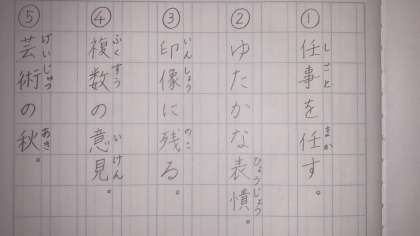 しごと まか
①任事を任す。
ひょうじょう
②ゆたかな表憤。
いんしょう のこ
③印像に残る。
ふくすう いけん
④複数の意見。
げいじゅつ あき
⑤芸術の秋。